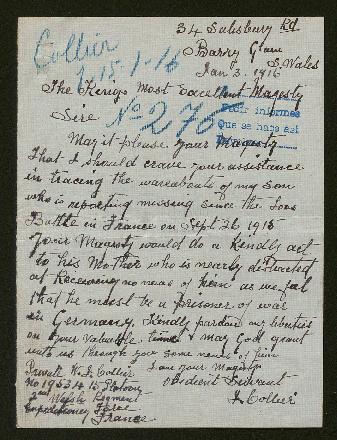 34 Salesbury Rd
Barry Glam
S. Wales
Jan 3. 1916
Collier
15-1-16
The Kings Most Excellent Magesty
Sire
No 276
informes
Que se haga asi
May it please your Magesty
That I should crave your assistance
in tracing the wareabouts of my son
who is reporting missing since the Loos
Battle in France on Sept 26 1915
Your Magesty would do a kindly act
to his Mother who is nearly distracted
at Receiving no news of him as we feal
that he must be a prisoner of war
in Germany. Kindly pardon my liberties
on your valueble time & may God grant
unto us through you some news of him
I am your Magesty
Obedient Servant
J. Collier
Private W. J. Collier
No 19534 15 Platoon
2nd Welsh Regment
Expeditionary Force
France